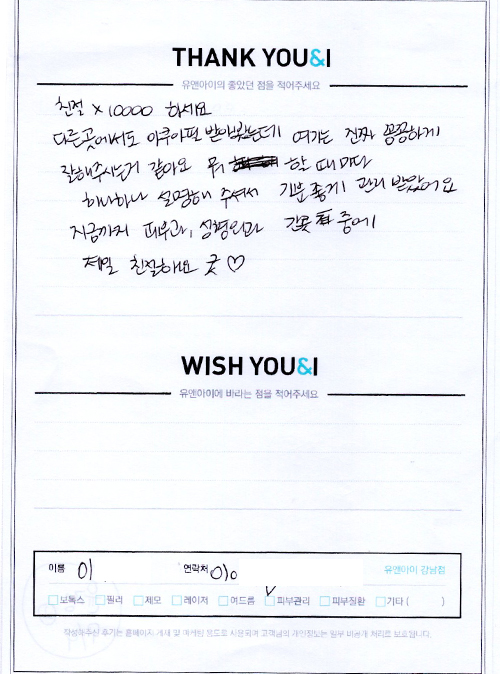 THANK YOU&I
유앤아이의 좋았던 점을 적어주세요
친절 × 10000 하세요
다른곳에서도 아쿠아필 받아봤는데 여기는 진짜 꼼꼼하게
잘해주시는거 같아요 뭐 할 때마다
하나하나 설명해 주셔서 기분좋게 관리 받았어요
지금까지 피부과, 성형외과 간곳 중에
제일 친절해요 굿 ♡
WISH YOU&I
유앤아이에 바라는 점을 적어주세요
이름 이 연락처 010 유앤아이 강남점
보톡스 필러 제모 레이저 여드름 ✓ 피부관리 피부질환 기타 ( )
작성해주신 후기는 홈페이지 게재 및 마케팅 용도로 사용되며 고객님의 개인정보는 일부 비공개 처리로 보호됩니다.